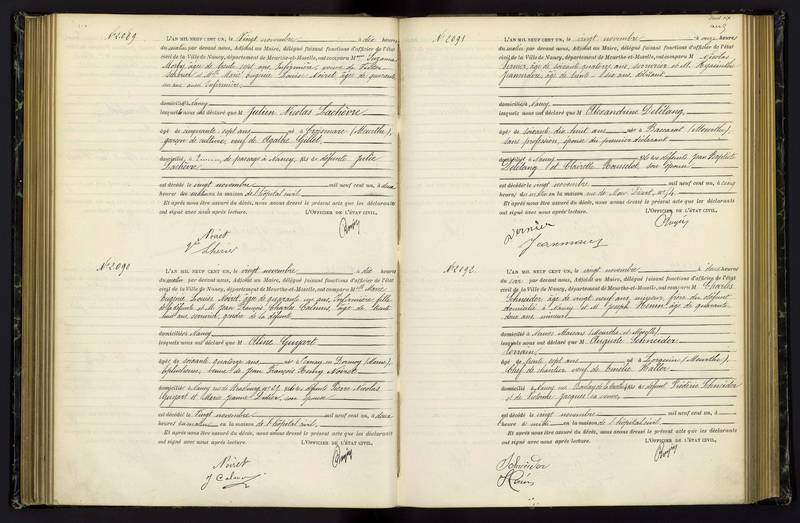 N° 2089
L'AN MIL NEUF CENT UN, le Vingt novembre à dix heures
du matin par devant nous, Adjoint au Maire, délégué faisant fonctions d'officier de l'état
civil de la Ville de Nancy, département de Meurthe-et-Moselle, ont comparu M
âgée de trente sept ans, Infirmière, veuve de
et Marie Eugénie Louise Noiret, âgée de quarante
un ans, Infirmière
domiciliés à Nancy
lesquels nous ont déclaré que M Julien Nicolas Lachèvre
âgé de cinquante sept ans né à (Meurthe),
garçon de culture, veuf de Agathe Gillot,
domicilié à de passage à Nancy, fils de défunte Julie
Lachèvre
est décédé le vingt novembre mil neuf cent un, à deux
heures du matin en la maison de l'hôpital civil
Et après nous être assuré du décès, nous avons dressé le présent acte que les déclarants
ont signé avec nous après lecture. L'OFFICIER DE L'ÉTAT CIVIL,
Noiret
N° 2090
L'AN MIL NEUF CENT UN, le vingt novembre à dix heures
du matin par devant nous, Adjoint au Maire, délégué faisant fonctions d'officier de l'état
civil de la Ville de Nancy, département de Meurthe-et-Moselle, ont comparu M Marie
Eugénie Louise Noiret, âgée de quarante un ans, Infirmière, fille
de la défunte et M. Jean François Charles Calmus, âgé de trente
huit ans, gendre de la défunte
domiciliés à Nancy
lesquels nous ont déclaré que M Aline Guyart
âgée de soixante quatorze ans née à
veuve de Jean François Noiret
domiciliée à Nancy rue de Strasbourg n° fille de défunts Pierre Nicolas
Guyart et Marie Jeanne Didier, son épouse
est décédée le Vingt novembre mil neuf cent un, à deux
heures du matin en la maison de l'hôpital civil
Et après nous être assuré du décès, nous avons dressé le présent acte que les déclarants
ont signé avec nous après lecture. L'OFFICIER DE L'ÉTAT CIVIL,
Noiret
N° 2091
L'AN MIL NEUF CENT UN, le vingt novembre à onze heures
du matin par devant nous, Adjoint au Maire, délégué faisant fonctions d'officier de l'état
civil de la Ville de Nancy, département de Meurthe-et-Moselle, ont comparu M Nicolas
Dernier, âgé de soixante quatorze ans, serrurier et M. Hyacinthe
âgé de trente six ans, débitant
domiciliés à Nancy
lesquels nous ont déclaré que M Alexandrine Delétang,
âgée de soixante dix huit ans née à Baccarat (Meurthe),
sans profession, épouse du premier déclarant
domiciliée à Nancy fille de défunts Jean Baptiste
Delétang et Clairette son épouse
est décédée le vingt novembre mil neuf cent un, à cinq
heures du matin en la maison rue de
Et après nous être assuré du décès, nous avons dressé le présent acte que les déclarants
ont signé avec nous après lecture. L'OFFICIER DE L'ÉTAT CIVIL,
Dernier
N° 2092
L'AN MIL NEUF CENT UN, le vingt novembre à deux heures
du soir par devant nous, Adjoint au Maire, délégué faisant fonctions d'officier de l'état
civil de la Ville de Nancy, département de Meurthe-et-Moselle, ont comparu M Charles
Schneider, âgé de vingt neuf ans, mineur, frère du défunt
domicilié à Nancy et M. Joseph âgé de quarante
deux ans, mineur
domiciliés à Neuves Maisons (Meurthe et Moselle)
lesquels nous ont déclaré que M Auguste Schneider
âgé de trente sept ans né à Lorquin (Meurthe),
chef de chantier, veuf de Emélie Haller
domicilié à Nancy fils de défunt Frédéric Schneider
et de Victorine Jacques sa veuve
est décédé le vingt novembre mil neuf cent un, à
heure en la maison de l'hôpital civil
Et après nous être assuré du décès, nous avons dressé le présent acte que les déclarants
ont signé avec nous après lecture. L'OFFICIER DE L'ÉTAT CIVIL,
Schneider